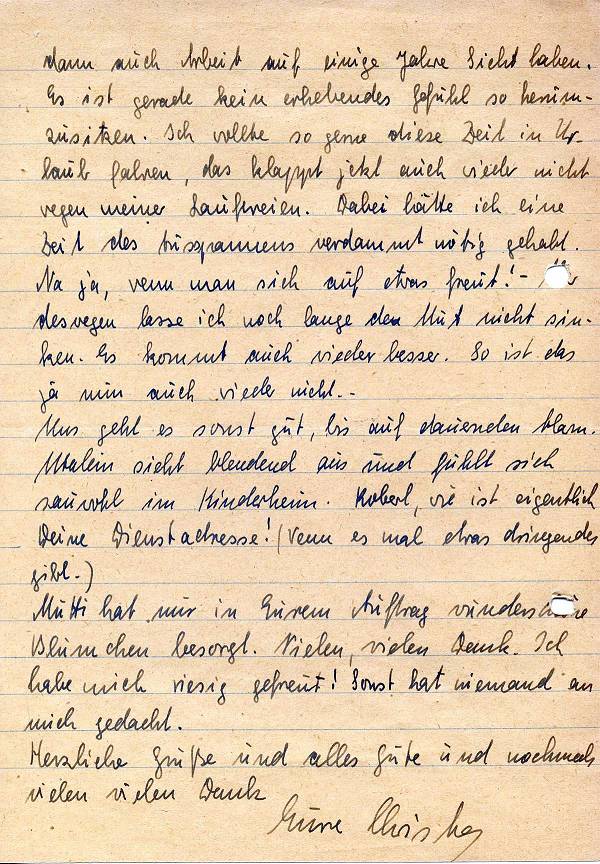 dann auch Arbeit auf einige Jahre Sicht haben.
Es ist gerade kein erhebendes Gefühl so herum-
zusitzen. Ich wollte so gerne diese Zeit in Ur-
laub fahren, das klappt jetzt auch wieder nicht
wegen meiner Laufereien. Dabei hätte ich eine
Zeit des Ausspannens verdammt nötig gehabt.
Na ja, wenn man sich auf etwas freut! -
deswegen lasse ich noch lange den Mut nicht sin-
ken. Es kommt auch wieder besser. So ist das
ja nun auch wieder nicht. -
Uns geht es sonst gut, bis auf dauernden Alarm.
sieht blendend aus und fühlt sich
sauwohl im Kinderheim. Robert, wie ist eigentlich
Deine Dienstadresse! (Wenn es mal etwas dringendes
gibt.)
Mutti hat mir in Eurem Auftrag wunderschöne
Blümchen besorgt. Vielen, vielen Dank. Ich
habe mich riesig gefreut! Sonst hat niemand an
mich gedacht.
Herzliche Grüße und alles Gute und nochmals
vielen vielen Dank
Eure